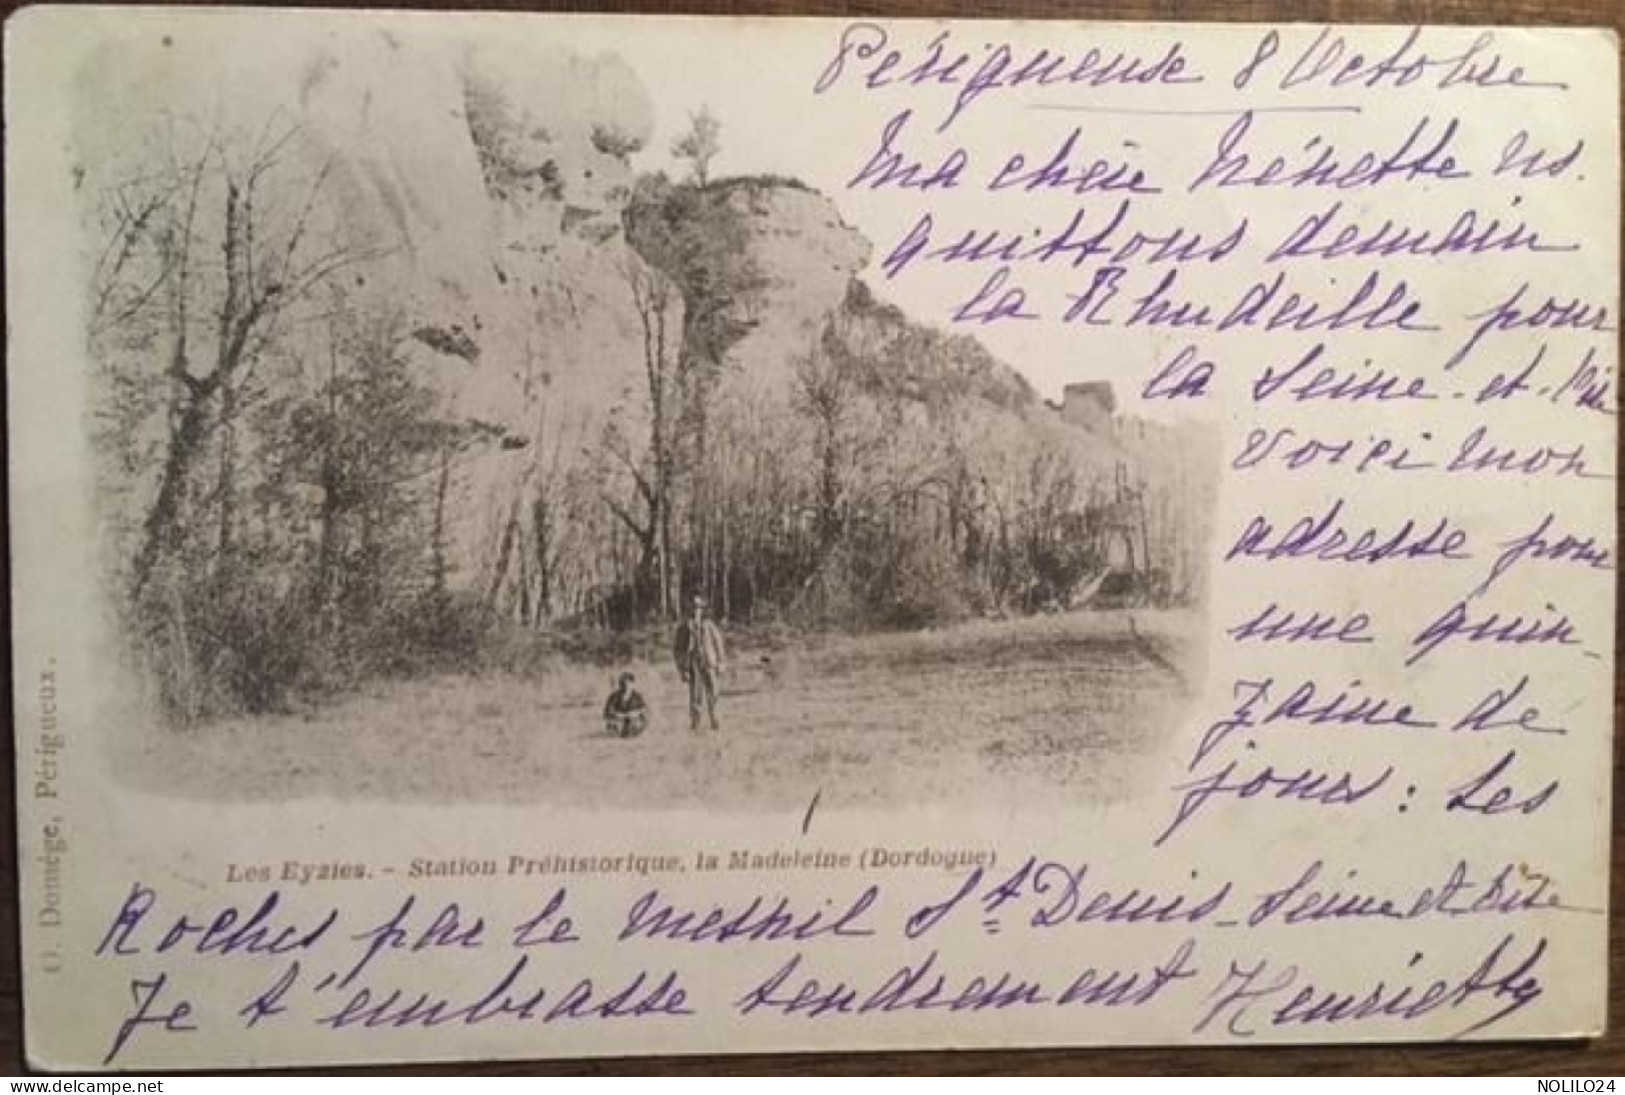 Périgueuse 8 Octobre
Ma chère Nénette ns.
quittons demain
la Rhudeille pour
la Seine-et-
Voici mon
adresse pour
une quin-
zaine de
jours : Les
Les Eyzies. - Station Préhistorique, la Madeleine (Dordogne)
Roches par le Mesnil St Denis-Seine et Oise
Je t'embrasse tendrement Henriette
O. Domége, Périgueux.
www.delcampe.net
NOLILO24